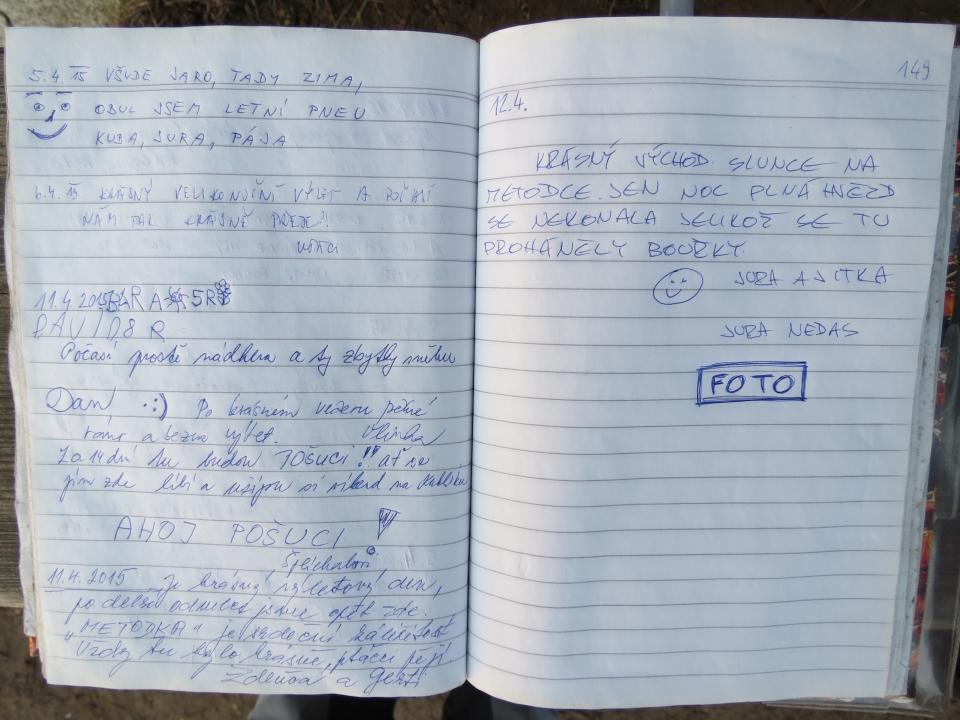 5.4. 15 VŠUDE JARO, TADY ZIMA,
OBUL JSEM LETNÍ PNEU
KUBA, JURA, PÁJA
6.4. 15 KRÁSNÝ VELIKONOČNÍ VÝLET A POČASÍ
NÁM TAK KRÁSNĚ PŘEJE!
11.4 2015
Počasí prostě nádhera a ty zbytky sněhu
Dan :) Po krásném večeru pěkné
ráno a výlet.
Za 14 dní tu budou TOŠUCI!! ať se
jim zde líbí a si na
AHOJ POŠUCI
11.4.2015 Je krásný výletový den,
po delší odmlce jsme opět zde.
"METODKA" je srdeční záležitost
Vždy tu bylo krásně, ptáci pějí.
Zdenka a Gerti
149
12.4.
KRÁSNÝ VÝCHOD SLUNCE NA
METODCE. JEN NOC PLNÁ HVĚZD
SE NEKONALA JELIKOŽ SE TU
PROHÁNĚLY BOUŘKY.
JURA A JITKA
JURA NEDAS
FOTO